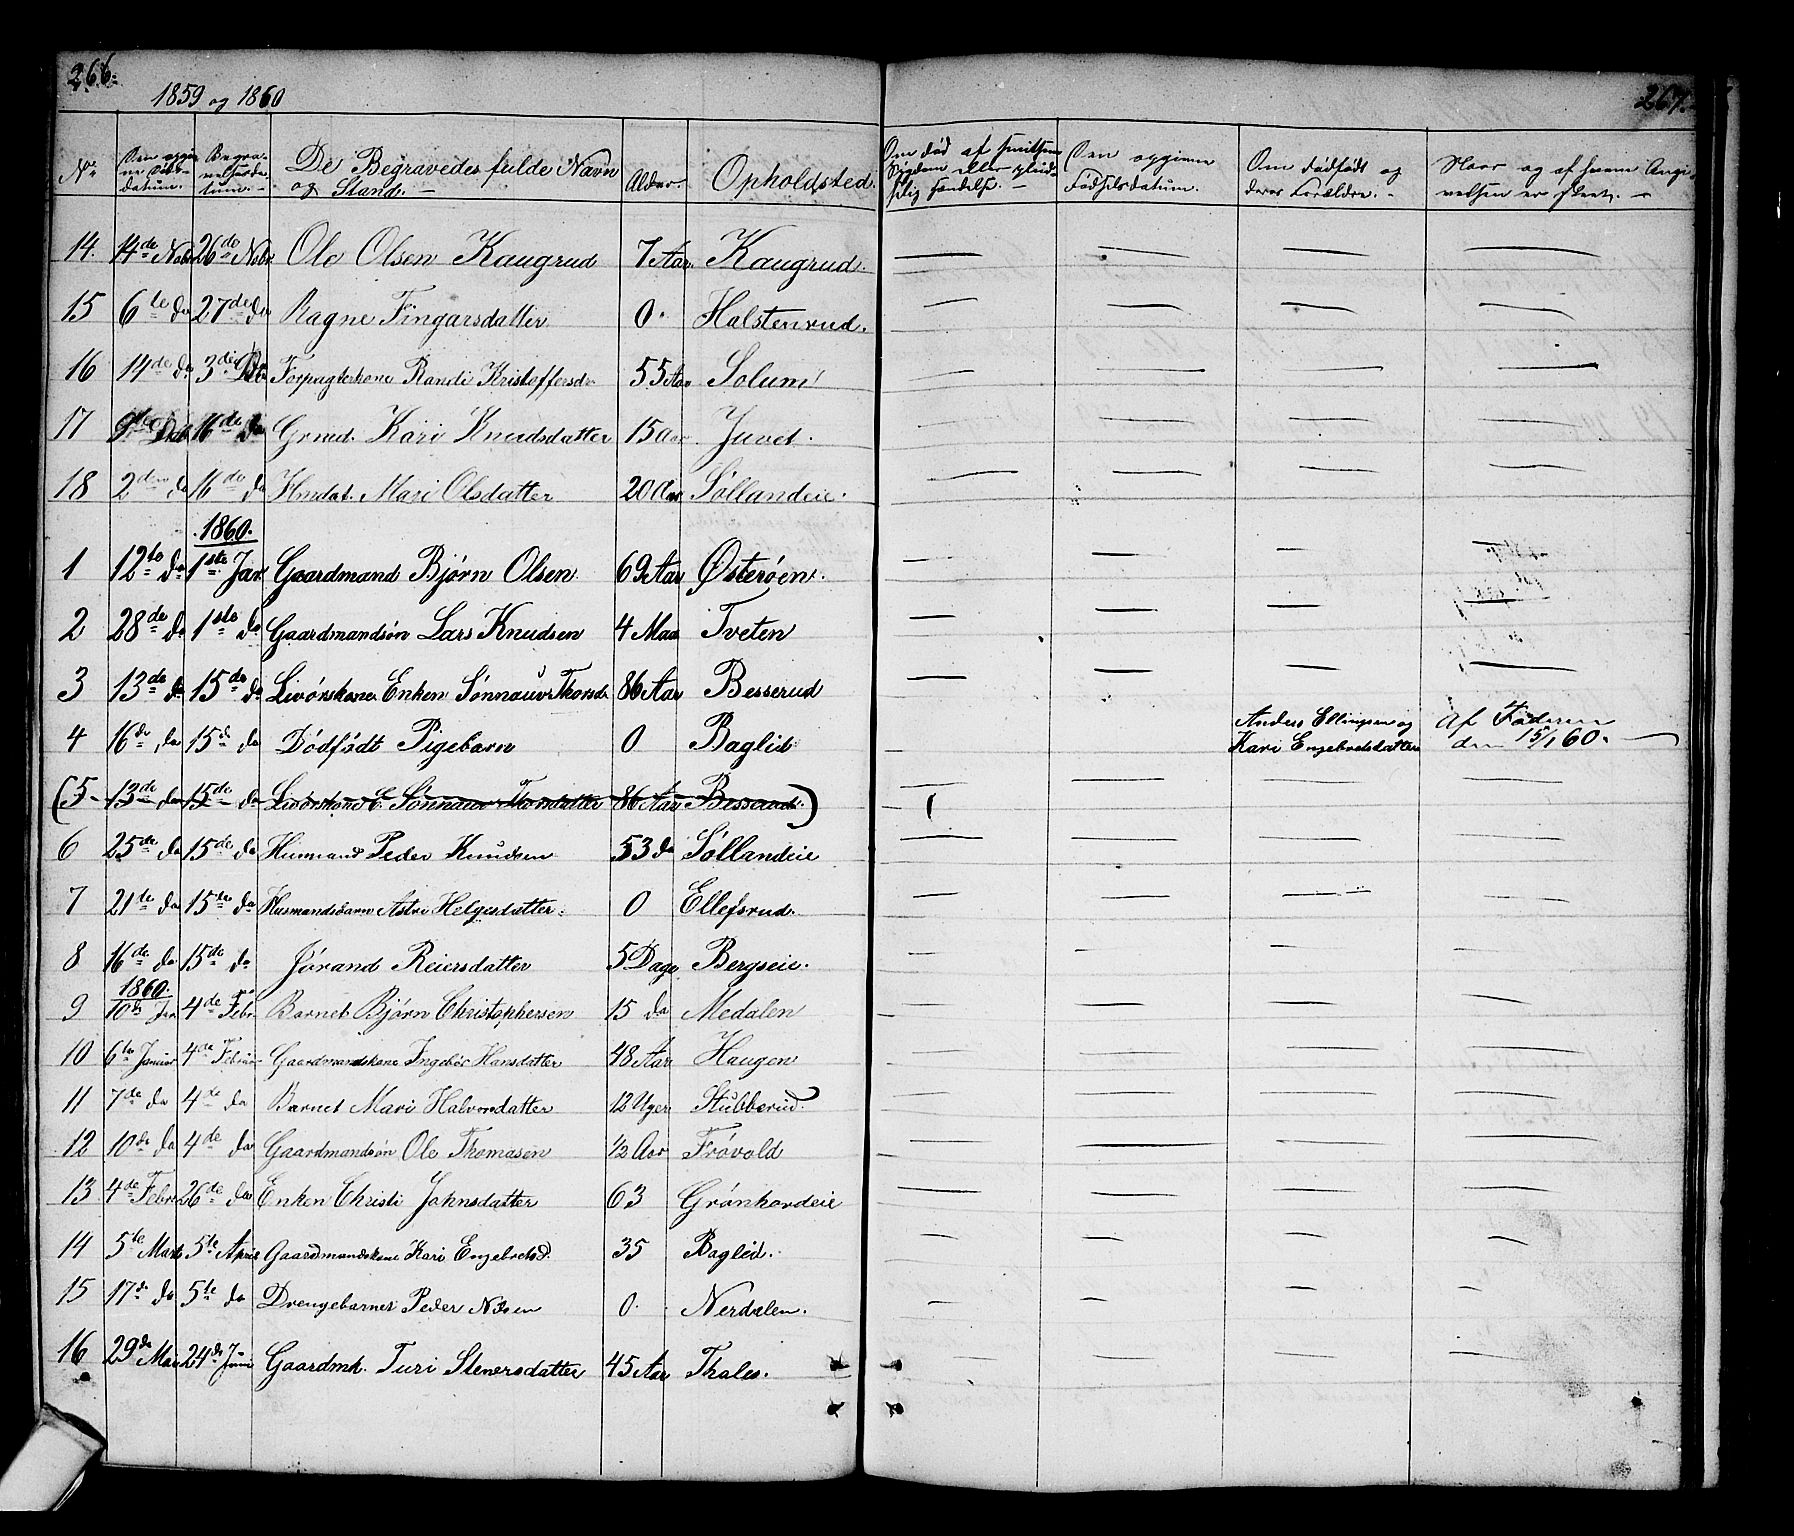 266.
267.
1859 og 1860
No. Den opgivne Døds-datum. Begravelsesdatum. De Begravedes fulde Navn og Stand. Alder. Opholdsted. Om død af smitsom Sygdom eller ulykkelig Hændelse. Den opgivne Fødselsdatum. Om dødfødt og deres Forældre. Naar og af hvem Angivelsen er skeet.
14. 14de Nobr 26de Nobr. Ole Olsen Kaugrud 7 Aar. Kaugrud. — — — —
15 6te do 27de do Ragne Fingarsdatter 0. Halstenrud. — — — —
16 14de do 3die Dbr Forpagterkone Randi Kristoffersdr 55 Aar Solum — — — —
17 9de Dcb 16de do Grmd. Kari Knudsdatter 15 Aar Juvet. — — — —
18 2den do 16de do Hmdat. Mari Olsdatter 20 Aar Søllandeie. — — — —
1860.
1 12te do 1ste Jan. Gaardmand Bjørn Olsen 69 Aar Østerøen. — — — —
2 28de do 1ste do Gaardmandsøn Lars Knudsen 4 Maa Tveten — — — —
3 13de do 15de do Livørskone Enken Sønnauv Thorsdr 86 Aar Besserud — — — —
4 16de do 15de do Dødfødt Pigebarn 0 Baglid — Anders Ellingsen og Kari Engebretsdatter Af Faderen den 15/1 60. —
(5 13de do 15de do Livørskone E. Sønnauv Thorsdatter 86 Aar Besserud.) — — — —
6 25de do 15de do Husmand Peder Knudsen 53 do Søllandeie — — — —
7 21te do 15de do Husmandsbarn Astri Helgesdatter. 0 Ellefsrud. — — — —
8 16de do 15de do Jørand Reiersdatter 5 Dage Bergseie. — — — —
1860.
9 10de Jan 4de Febr. Barnet Bjørn Christophersen 15 do Medalen — — — —
10 6te Januar 4de Februar Gaardmandskone Ingebor Hansdatter 48 Aar Haugen — — — —
11 7de do 4de do Barnet Mari Halvorsdatter 12 Uger Stubberud. — — — —
12 10de do 4de do Gaardmandsøn Ole Thomasen 1/2 Aar Frøvold — — — —
13 4de Febr 26de do Enken Christi Johnsdatter 63 Grønhovdeie — — — —
14 5te Marts 5te April Gaardmandskone Kari Engebretsd. 35 Baglid. — — — —
15 17de do 5te do Drengebarnet Peder Nilsen 0. Nerdalen. — — — —
16 29de Mai 24de Juni Gaardmk. Turi Stenersdatter 45 Aar Thales. — — — —